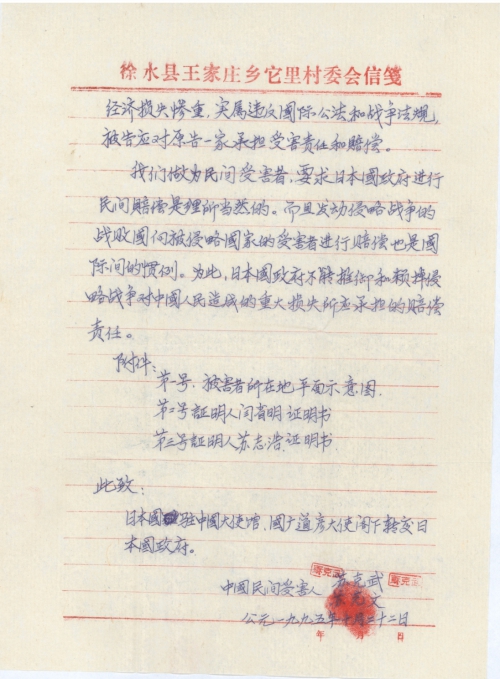 徐水县王家庄乡它里村委会信笺
经济损失惨重,实属违反國际公法和战争法规,
被告应对原告一家承担受害责任和赔偿。
我们做为民间受害者,要求日本國政府进行
民间赔偿是理所当然的。而且发动侵略战争的
战败國向被侵略國家的受害者进行赔偿也是國
际间的惯例。为此,日本國政府不能推卸和赖掉侵
略战争对中國人民造成的重大损失所应承担的赔偿
责任。
附件:
第一号:被害者所在地平面示意图.
第二号証明人闫育明証明书
第三号証明人苏志浩.証明书.
此致:
日本國驻中國大使馆,國广道彦大使阁下转交日
本國政府。
中國民间受害人 苏克武
克文
公元一九九五年十月二十二日
年 月 日